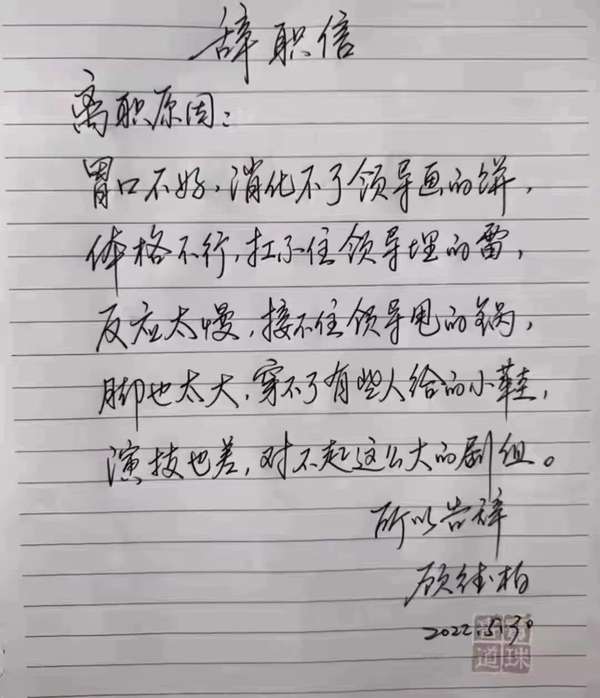 辞职信
离职原因：
胃口不好，消化不了领导画的饼，
体格不行，扛不住领导埋的雷，
反应太慢，接不住领导甩的锅，
脚也太大，穿不了有些人给的小鞋，
演技也差，对不起这么大的剧组。
所以告辞
顾佳柏
2022.5.30